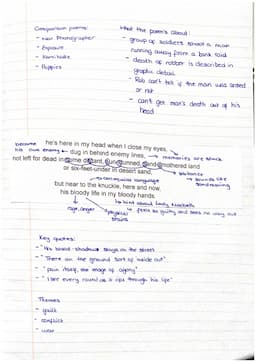 Comparison poems:
- War Photographer
- Exposure
- Kamikaze
- Poppies
What the poem's about:
- group of soldiers shoot a man
running away from a bank raid
- death of robber is described in
graphic detail
- Rob can't tell if the man was armed
or not
- can't get man's death out of his
head
he's here in my head when I close my eyes,
dug in behind enemy lines,
become
his own enemy
memories are stuck
not left for dead in some distant, sun-stunned, sand-smothered land
or six-feet-under in desert sand,
distance
sounds like
conversational language
but near to the knuckle, here and now,
his bloody life in my bloody hands.
hint about Lady Macbeth
feels so guilty and sees no way out
rage, anger
physical
stains
Key quotes:
- "His blood-shadow stays on the street"
- "There on the ground sort of inside out"
- "pain itself, the image of agony"
- "I see every round as it rips through his life"
Themes
- guilt
- conflict
- war